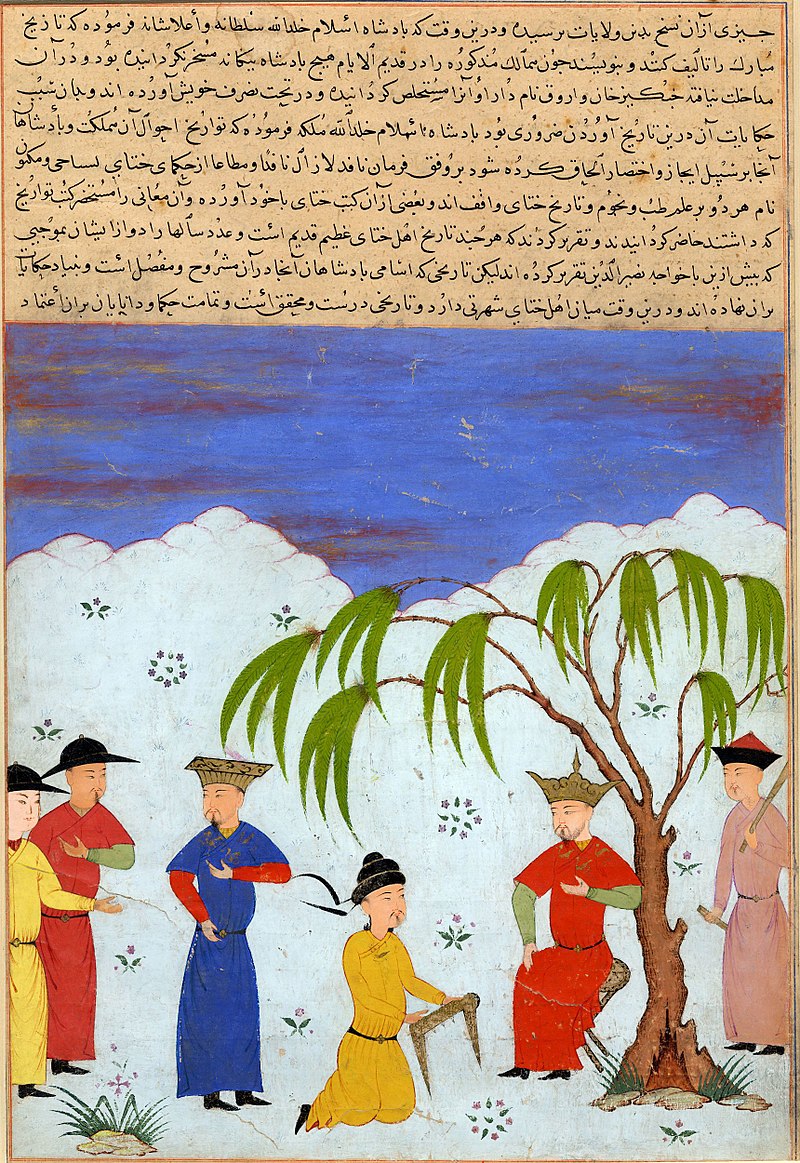 چیزی از آن نسخ بدین ولایات نرسیده و درین وقت که بادشاه اسلام خلدالله سلطانه و أعلا شانه فرموده که تاریخ
مبارک را تألیف کنند و بنویسند چون ممالک مذکوره را در قدیم الایام هیچ بادشاه بیکانه مسخر نکردانیده بود و در آن
مداخلت نیافته جنکیز خان و اروق نام دار او آنرا مستخلص کردانیده و در تحت تصرف خویش آورده اند و بدان سبب
حکایات آن درین تاریخ آوردن ضروری بود بادشاه اسلام خلدالله ملکه فرموده که تواریخ احوال آن مملکت و بادشاهان
آنجا بر سبیل ایجاز و اختصار الحاق کرده شود بر وفق فرمان نافد لازال نافدا و مطاعا از حکمای ختای لیتاحی و مکسون
نام هر دو بر علم طب و نجوم و تاریخ ختای واقف اند و بعضی از آن کتب ختای با خود آورده و آن معانی را مستحضر کتب تواریخ
که داشتند حاضر کردانیدند و تقریر کردند که هر چند تاریخ اهل ختای عظیم قدیم است و عدد سالها را دوار ایشان بموجبی
که بیش ازین با خواجه نصیر الدین تقریر کرده اند لیکن تاریخی که اسامی بادشاهان آنجا در آن مشروح و مفصل است و بنیاد حکایات
بران نهاده اند و درین وقت میان اهل ختای شهرتی دارد و تاریخی درست و محقق است و تمامت حکما و دانایان بران اعتماد